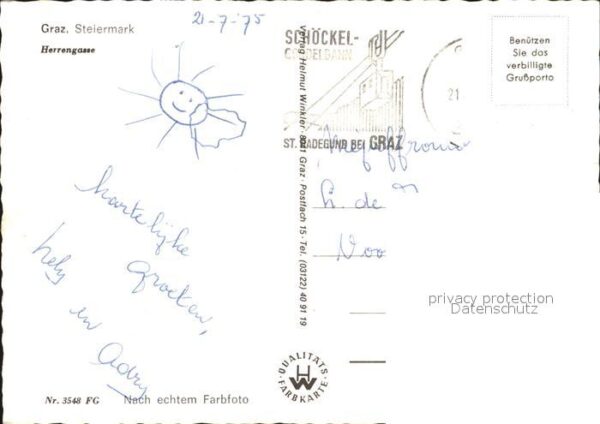 21-7-'75
Graz. Steiermark
Herrengasse
SCHÖCKEL-
GONDELBAHN
ST. RADEGUND BEI GRAZ
21
Benützen
Sie das
verbilligte
Grußporto
hartelijke
groeten,
en
Verlag Helmut Winkler · 8011 Graz · Postfach 15 · Tel. (03122) 40 91 19
de
privacy protection
Datenschutz
QUALITÄTS-
HW
FARBKARTE
Nr. 3548 FG
Nach echtem Farbfoto